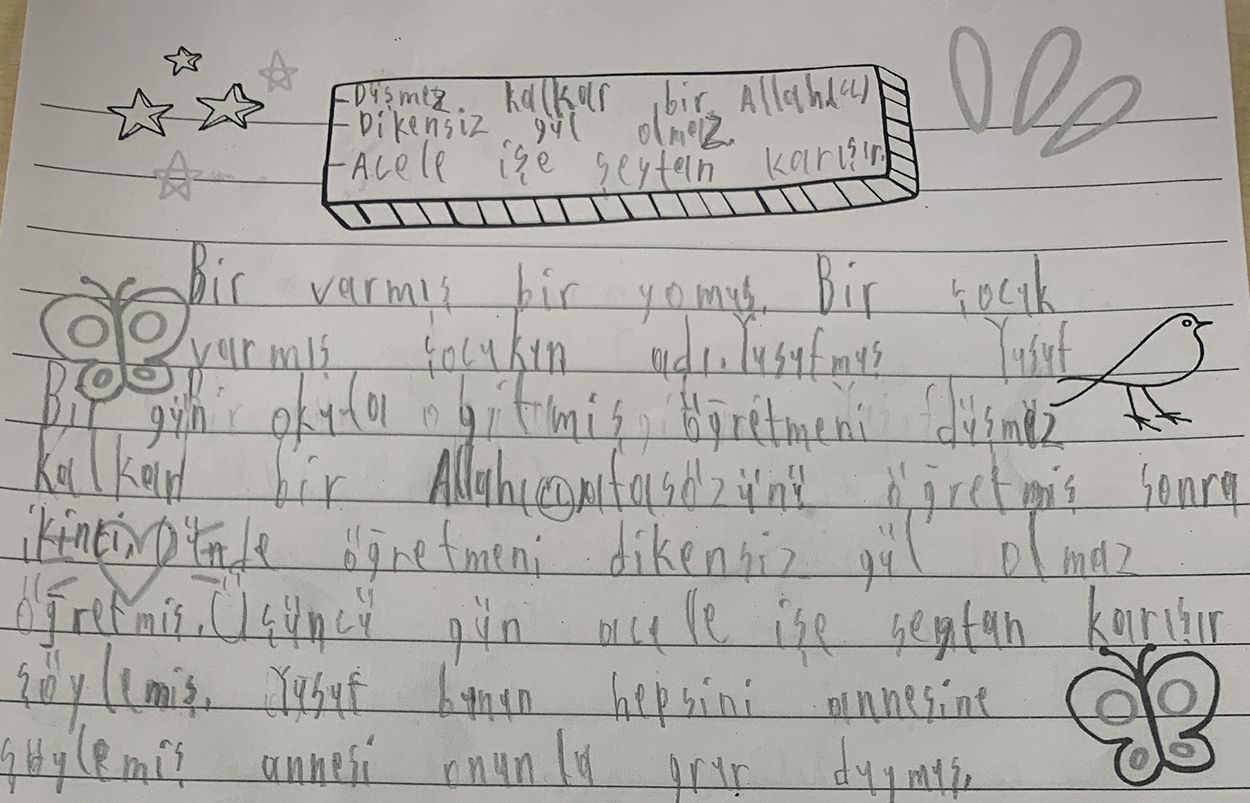 -Düşmez kalkar bir Allahd(u)
-Dikensiz gül olmaz.
-Acele işe şeytan karışır.
Bir varmış bir yomuş. Bir çocuk
varmış çocukun adı. Yusufmuş Yusuf
Bir gün okulda öğretmeni düşmez
kalkan bir Allah atasözünü öğretmiş sonra
ikinci günde öğretmeni dikensiz gül olmaz
öğretmiş. Üçüncü gün acele işe şeytan karışır
söylemiş. Yusuf bunun hepsini annesine
söylemiş annesi onunla grur duymuş.